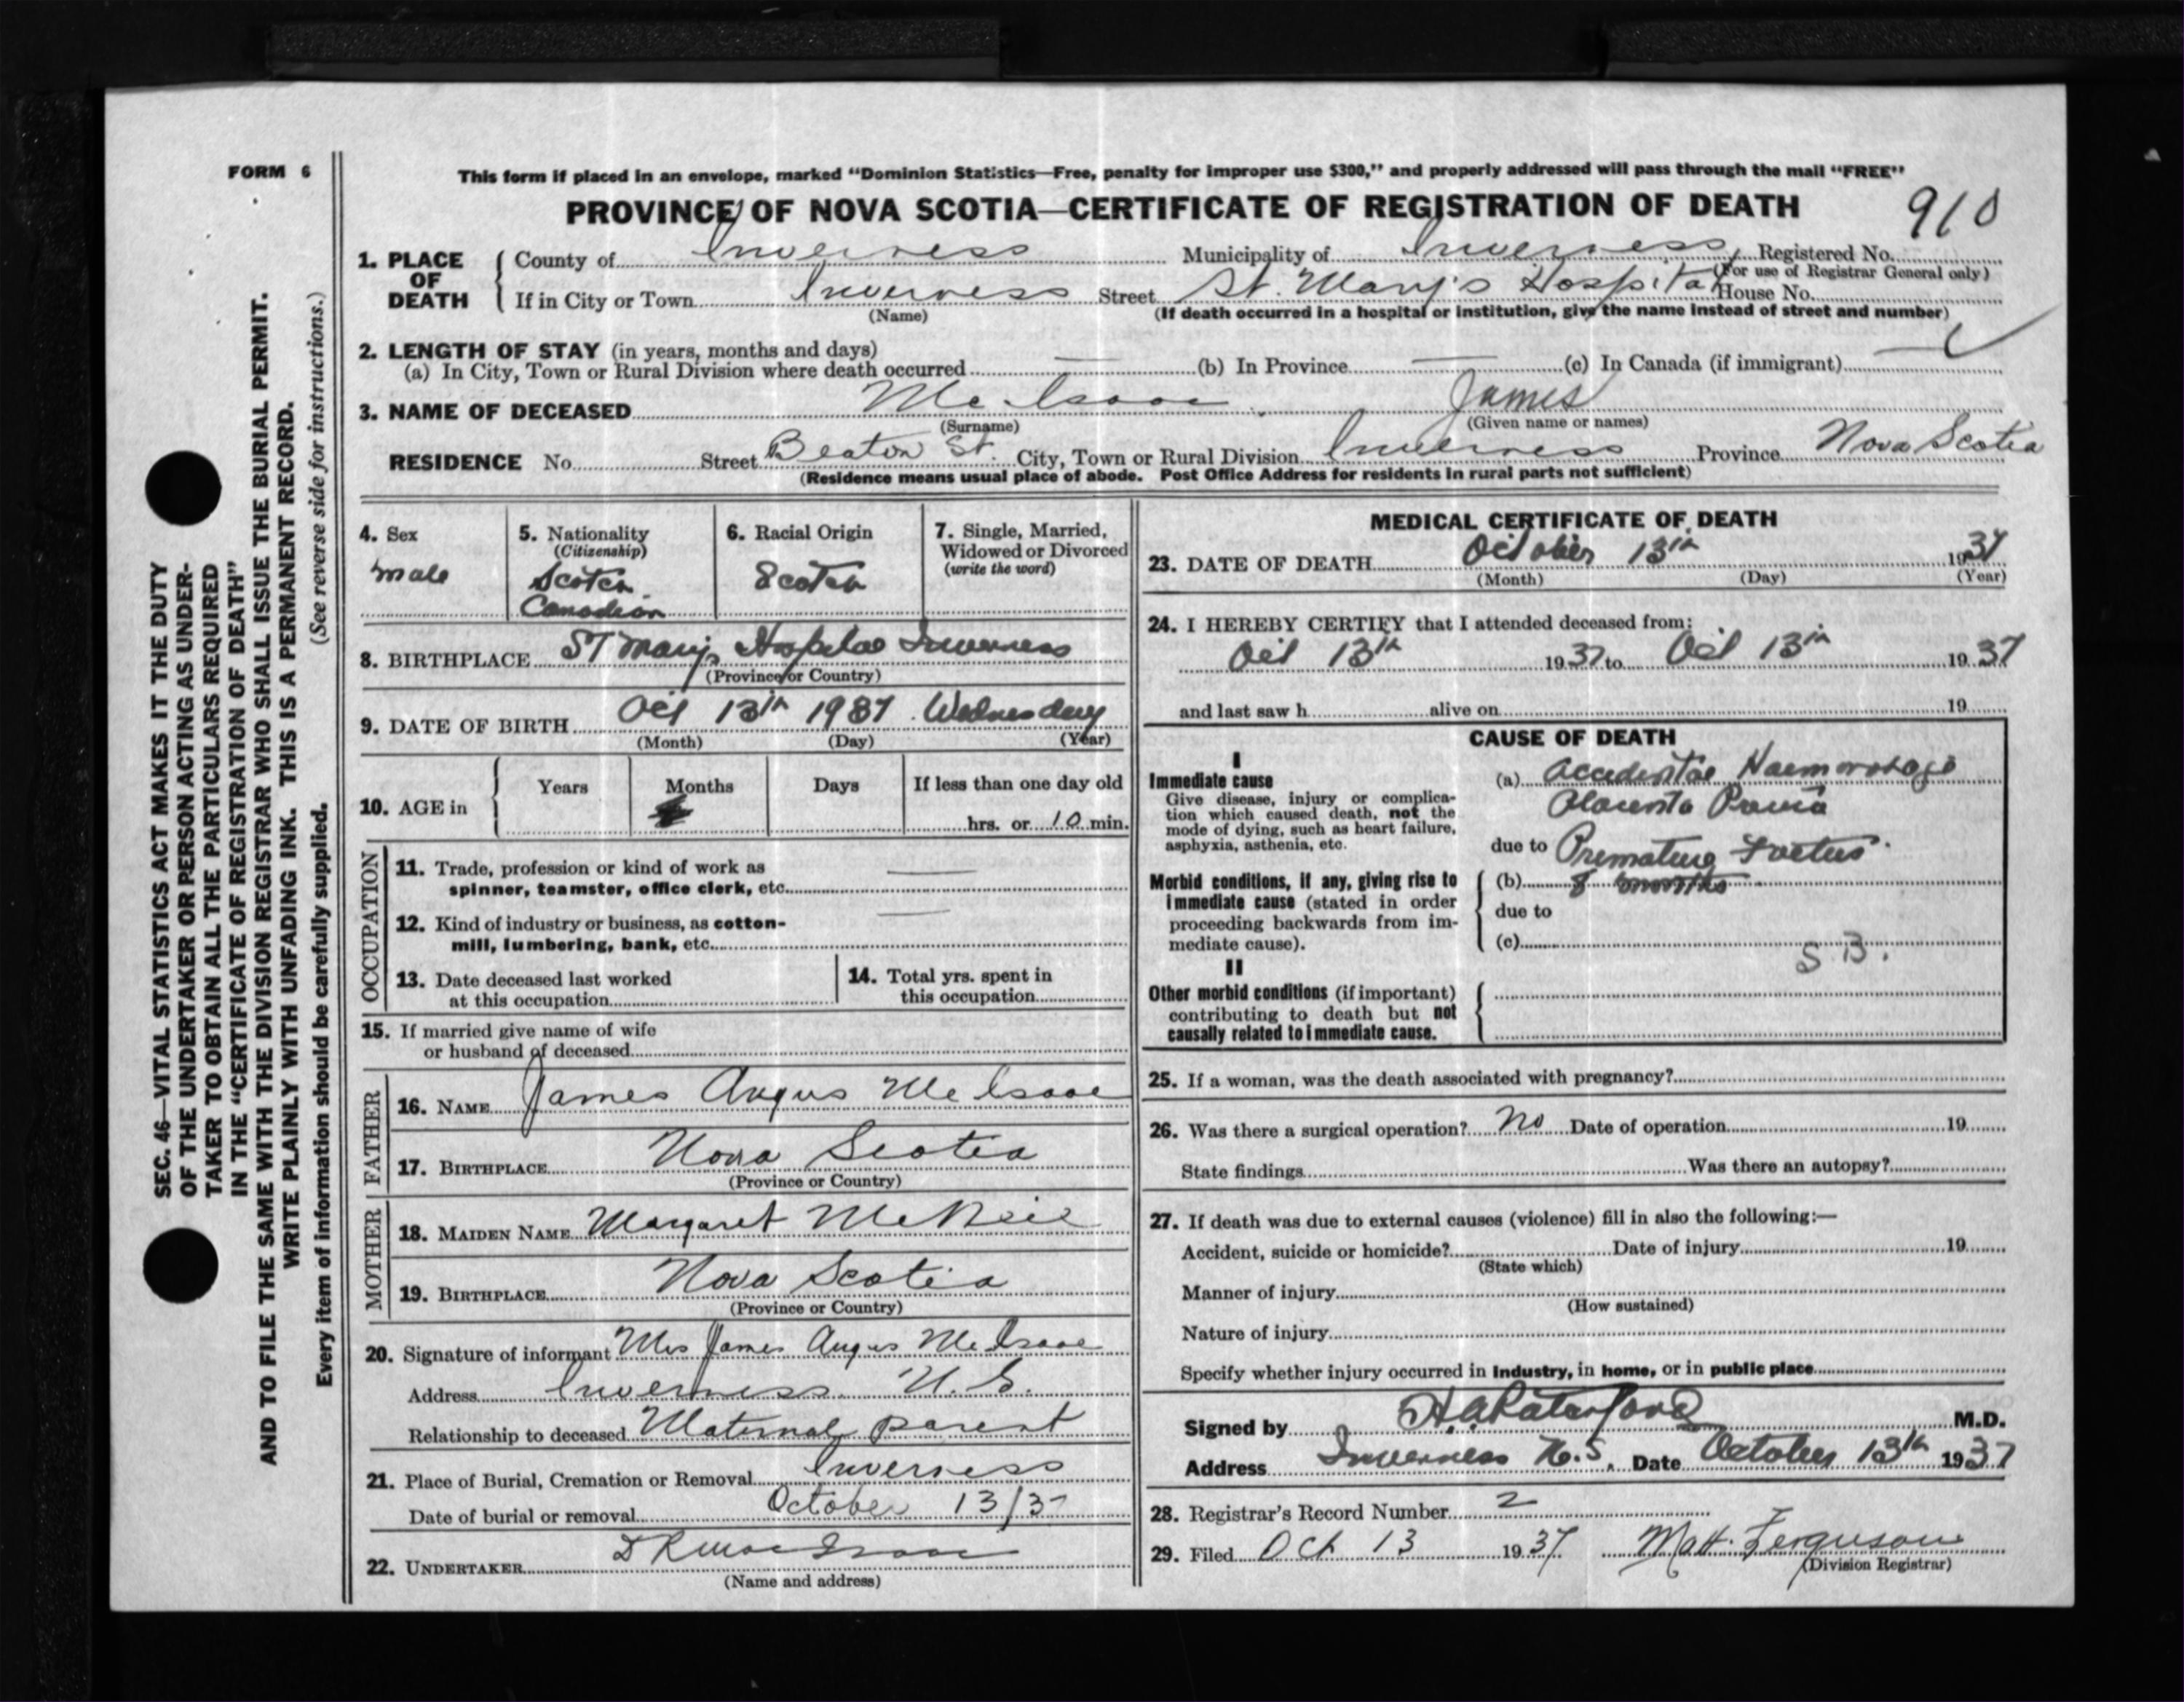 FORM 6
This form if placed in an envelope, marked “Dominion Statistics—Free, penalty for improper use $300,” and properly addressed will pass through the mail “FREE”
PROVINCE OF NOVA SCOTIA—CERTIFICATE OF REGISTRATION OF DEATH
910
1. PLACE OF DEATH
County of Inverness Municipality of Inverness Registered No.
(For use of Registrar General only)
If in City or Town Inverness Street St. Mary's Hospital House No.
(Name) (If death occurred in a hospital or institution, give the name instead of street and number)
2. LENGTH OF STAY (in years, months and days)
(a) In City, Town or Rural Division where death occurred — (b) In Province — (c) In Canada (if immigrant) —
3. NAME OF DECEASED Mc Isaac James
(Surname) (Given name or names)
RESIDENCE No. Street Beaton St. City, Town or Rural Division Inverness Province Nova Scotia
(Residence means usual place of abode. Post Office Address for residents in rural parts not sufficient)
4. Sex
male
5. Nationality
(Citizenship)
Scotch
Canadian
6. Racial Origin
Scotch
7. Single, Married,
Widowed or Divorced
(write the word)
8. BIRTHPLACE St Marys Hospital Inverness
(Province or Country)
9. DATE OF BIRTH Oct 13th 1937 Wednesday
(Month) (Day) (Year)
10. AGE in
Years Months Days If less than one day old
hrs. or 10 min.
OCCUPATION
11. Trade, profession or kind of work as
spinner, teamster, office clerk, etc. —
12. Kind of industry or business, as cotton-
mill, lumbering, bank, etc. —
13. Date deceased last worked
at this occupation
14. Total yrs. spent in
this occupation
15. If married give name of wife
or husband of deceased
FATHER
16. NAME James Angus Mc Isaac
17. BIRTHPLACE Nova Scotia
(Province or Country)
MOTHER
18. MAIDEN NAME Margaret McNeil
19. BIRTHPLACE Nova Scotia
(Province or Country)
20. Signature of informant Mrs James Angus Mc Isaac
Address Inverness N.S.
Relationship to deceased Maternal parent
21. Place of Burial, Cremation or Removal Inverness
Date of burial or removal October 13/37
22. UNDERTAKER
(Name and address)
MEDICAL CERTIFICATE OF DEATH
23. DATE OF DEATH October 13th 1937
(Month) (Day) (Year)
24. I HEREBY CERTIFY that I attended deceased from:
Oct 13th 1937 to Oct 13th 1937
and last saw h alive on 19
CAUSE OF DEATH
I
Immediate cause
Give disease, injury or complica-
tion which caused death, not the
mode of dying, such as heart failure,
asphyxia, asthenia, etc.
(a) Accidental Haemorrhage
Placenta Previa
due to Premature Foetus
Morbid conditions, if any, giving rise to
immediate cause (stated in order
proceeding backwards from im-
mediate cause).
(b) 8 months
due to
(c)
S.B.
II
Other morbid conditions (if important)
contributing to death but not
causally related to immediate cause.
25. If a woman, was the death associated with pregnancy?
26. Was there a surgical operation? No Date of operation 19
State findings Was there an autopsy?
27. If death was due to external causes (violence) fill in also the following:—
Accident, suicide or homicide? Date of injury 19
(State which)
Manner of injury
(How sustained)
Nature of injury
Specify whether injury occurred in industry, in home, or in public place
Signed by M.D.
Address Inverness N.S. Date October 13th 1937
28. Registrar's Record Number 2
29. Filed Oct 13 1937 Matt. Ferguson
(Division Registrar)
SEC. 46—VITAL STATISTICS ACT MAKES IT THE DUTY
OF THE UNDERTAKER OR PERSON ACTING AS UNDER-
TAKER TO OBTAIN ALL THE PARTICULARS REQUIRED
IN THE “CERTIFICATE OF REGISTRATION OF DEATH”
AND TO FILE THE SAME WITH THE DIVISION REGISTRAR WHO SHALL ISSUE THE BURIAL PERMIT.
WRITE PLAINLY WITH UNFADING INK. THIS IS A PERMANENT RECORD.
Every item of information should be carefully supplied. (See reverse side for instructions.)